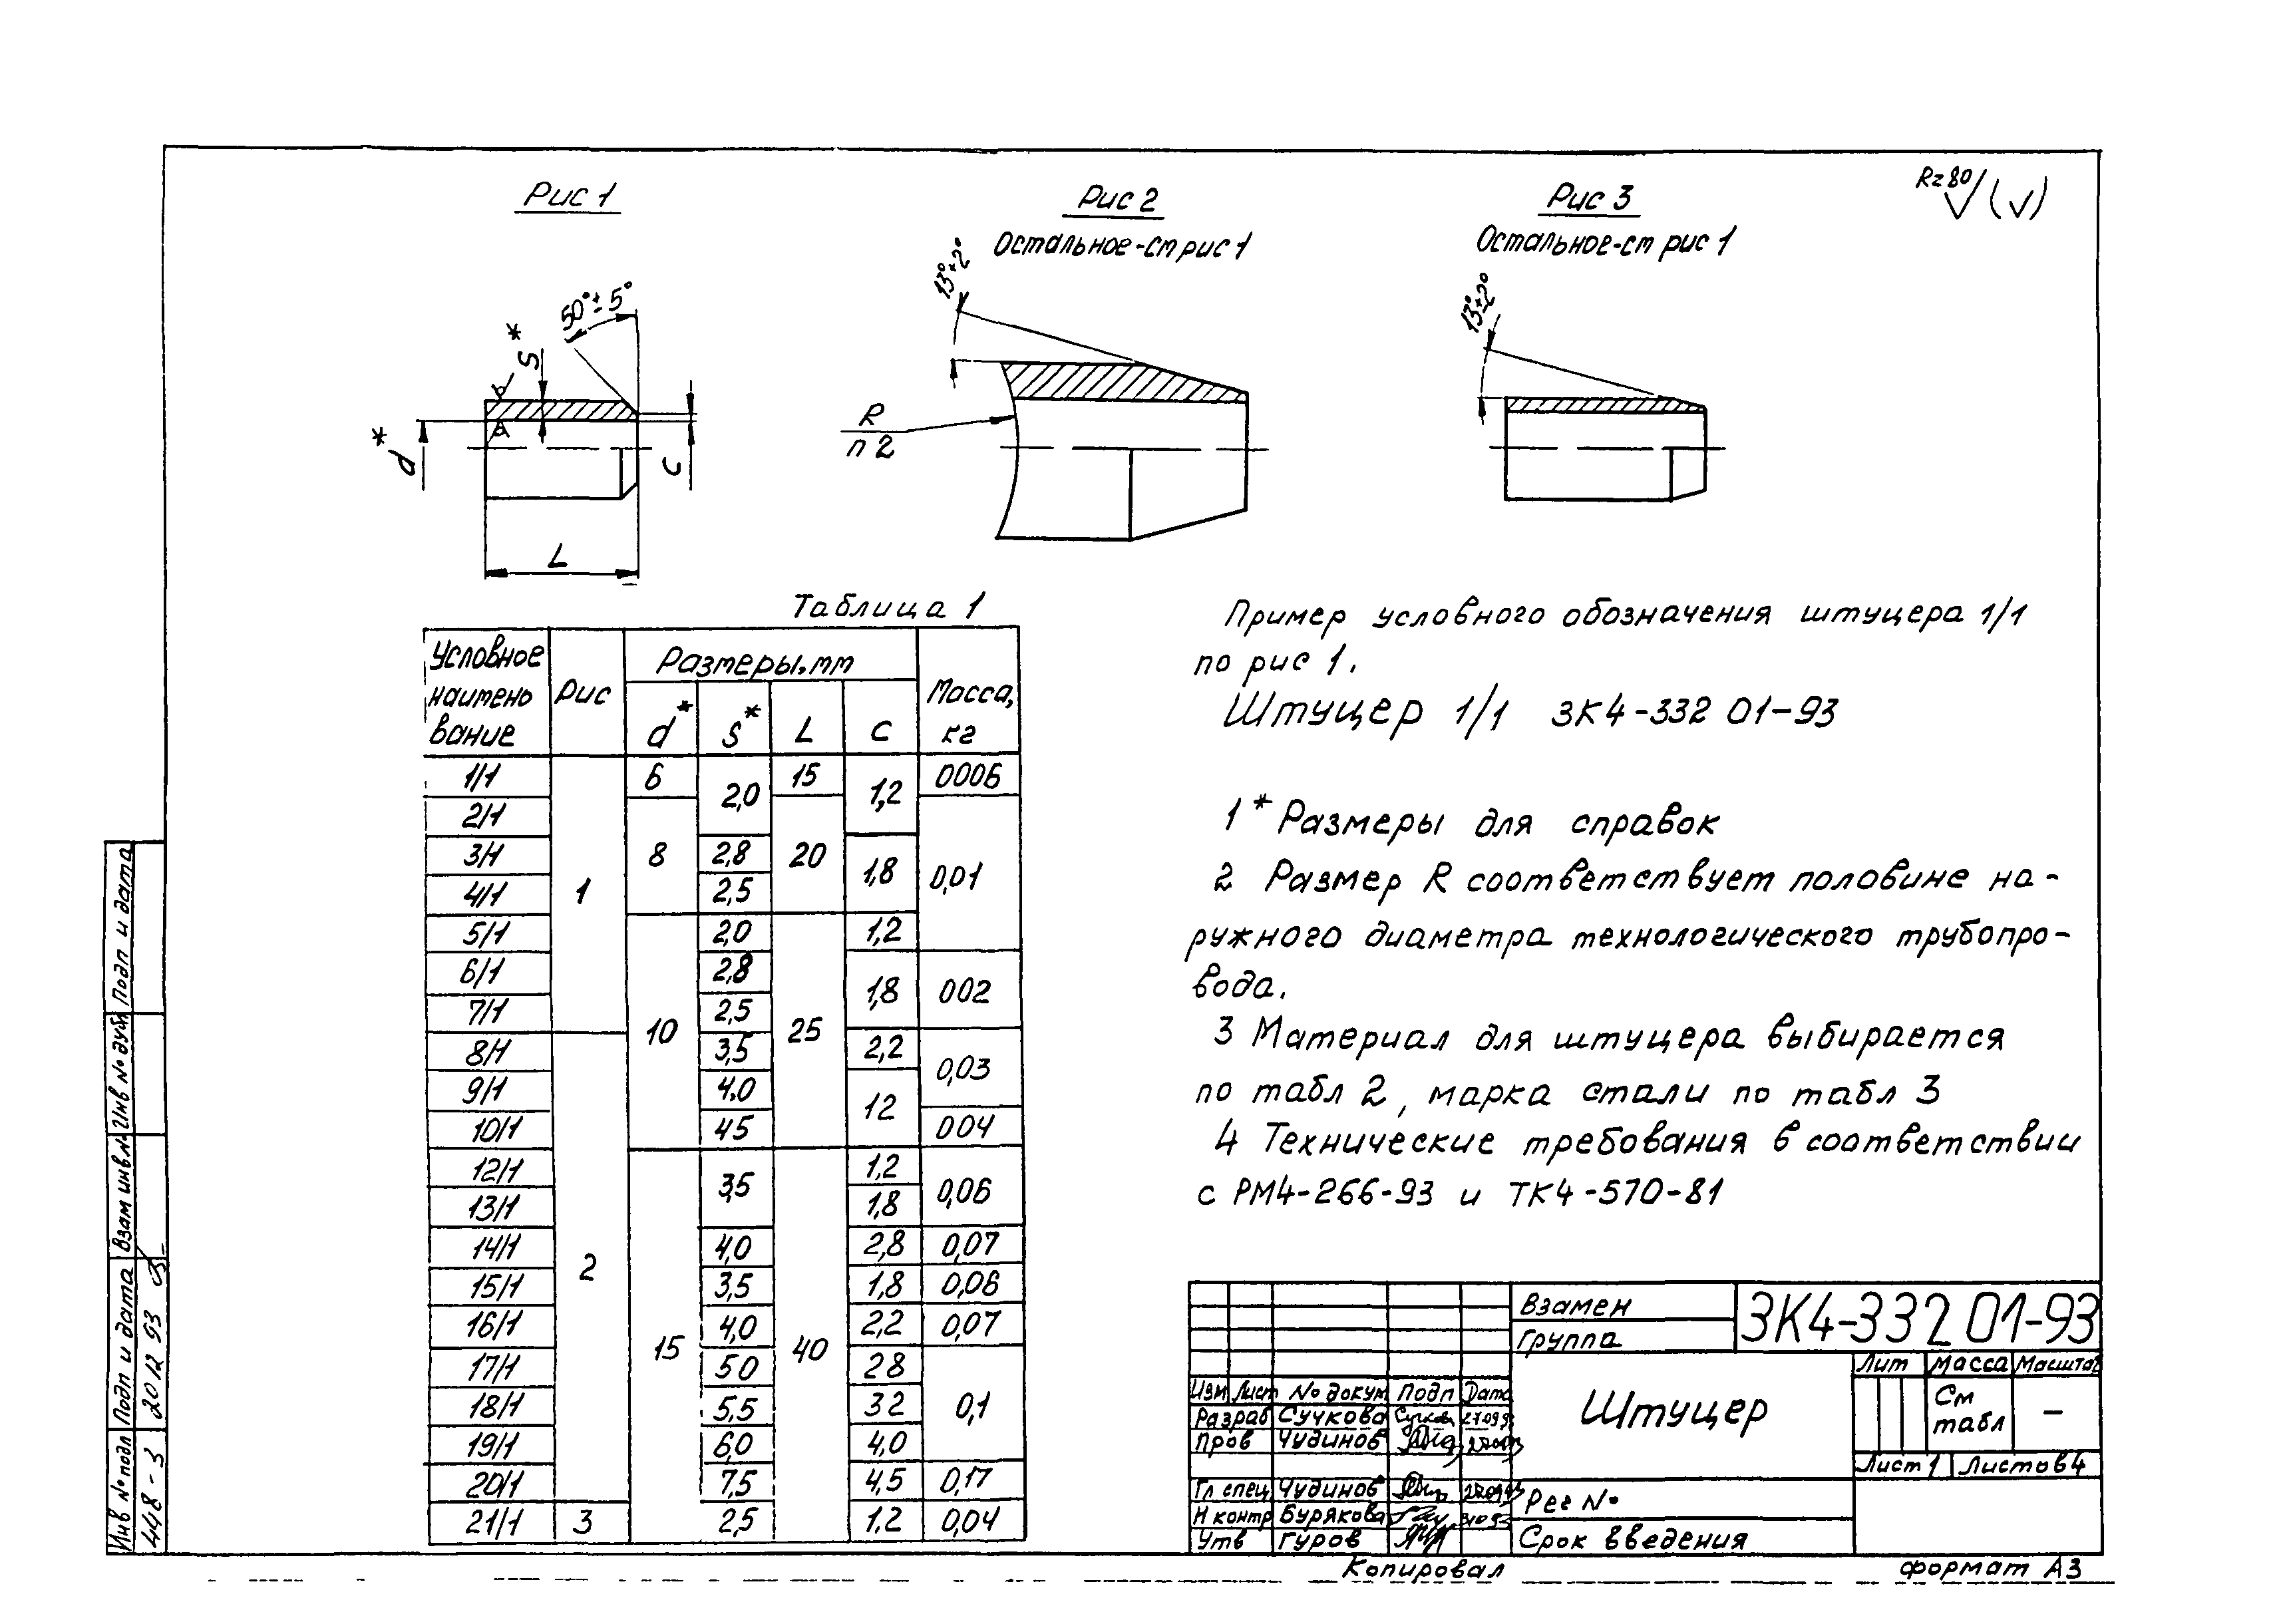 Рис 1
Рис 2
Остальное-см рис 1
Рис 3
Остальное-см рис 1
Rz 80 (√)
50°±5°
S*
d*
c
L
13°±2°
R
п 2
13°±2°
Таблица 1
Условное наимено вание
Рис
Размеры, мм
d*
S*
L
c
Масса, кг
1/1 1 6 2,0 15 1,2 0006
2/1 8 20 0,01
3/1 2,8 1,8
4/1 2,5
5/1 10 2,0 25 1,2
6/1 2,8 1,8 002
7/1 2,5
8/1 2 3,5 2,2 0,03
9/1 4,0 12
10/1 45 004
12/1 15 3,5 40 1,2 0,06
13/1 1,8
14/1 4,0 2,8 0,07
15/1 3,5 1,8 0,06
16/1 4,0 2,2 0,07
17/1 50 28 0,1
18/1 5,5 32
19/1 6,0 4,0
20/1 7,5 4,5 0,17
21/1 3 2,5 1.2 0,04
Пример условного обозначения штуцера 1/1
по рис 1.
Штуцер 1/1 ЗК4-332 01-93
1 * Размеры для справок
2 Размер R соответствует половине на-
ружного диаметра технологического трубопро-
вода.
3 Материал для штуцера выбирается
по табл 2, марка стали по табл 3
4 Технические требования в соответствии
с РМ4-266-93 и ТК4-570-81
Взамен
Группа
ЗК4-332 01-93
Изм Лист № докум Подп Дата
Разраб Сучкова
Пров Чудинов
Гл спец Чудинов
Н контр Бурякова
Утв Гуров
Штуцер
Лит Масса Масштаб
См табл –
Лист 1 Листов 4
Рег №
Срок введения
Копировал
формат А3
Подп и дата
Инв № дубл
Взам инв №
Подп и дата
20 12 93
Инв № подл
448-3